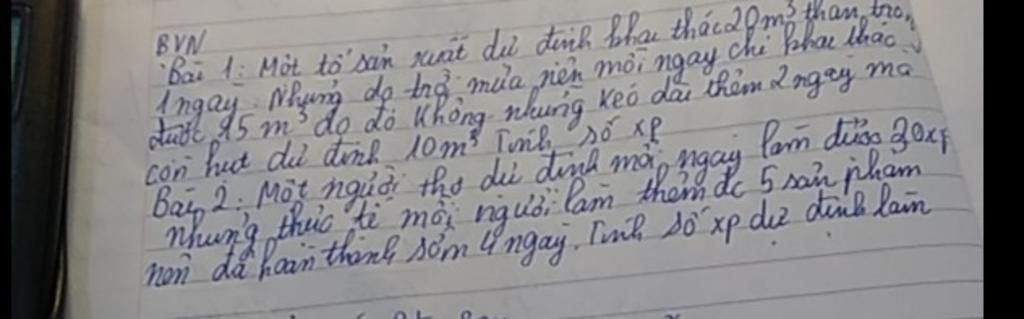 BVN
Bài 1: Một tổ sản xuất dự định khai thác 20 m³ than tro,
1 ngày. Nhưng do trở mưa nên mỗi ngày chỉ khai thác
được 15 m³ do đó không những kéo dài thêm 2 ngày mà
còn hụt dự định 10m³ Tính số xp
Bài 2: Một người thợ dự định mỗi ngày làm được 30xp
nhưng thực tế mỗi người làm thêm đc 5 sản phẩm
nên đã hoàn thành sớm 4 ngày. Tính số xp dự định làm